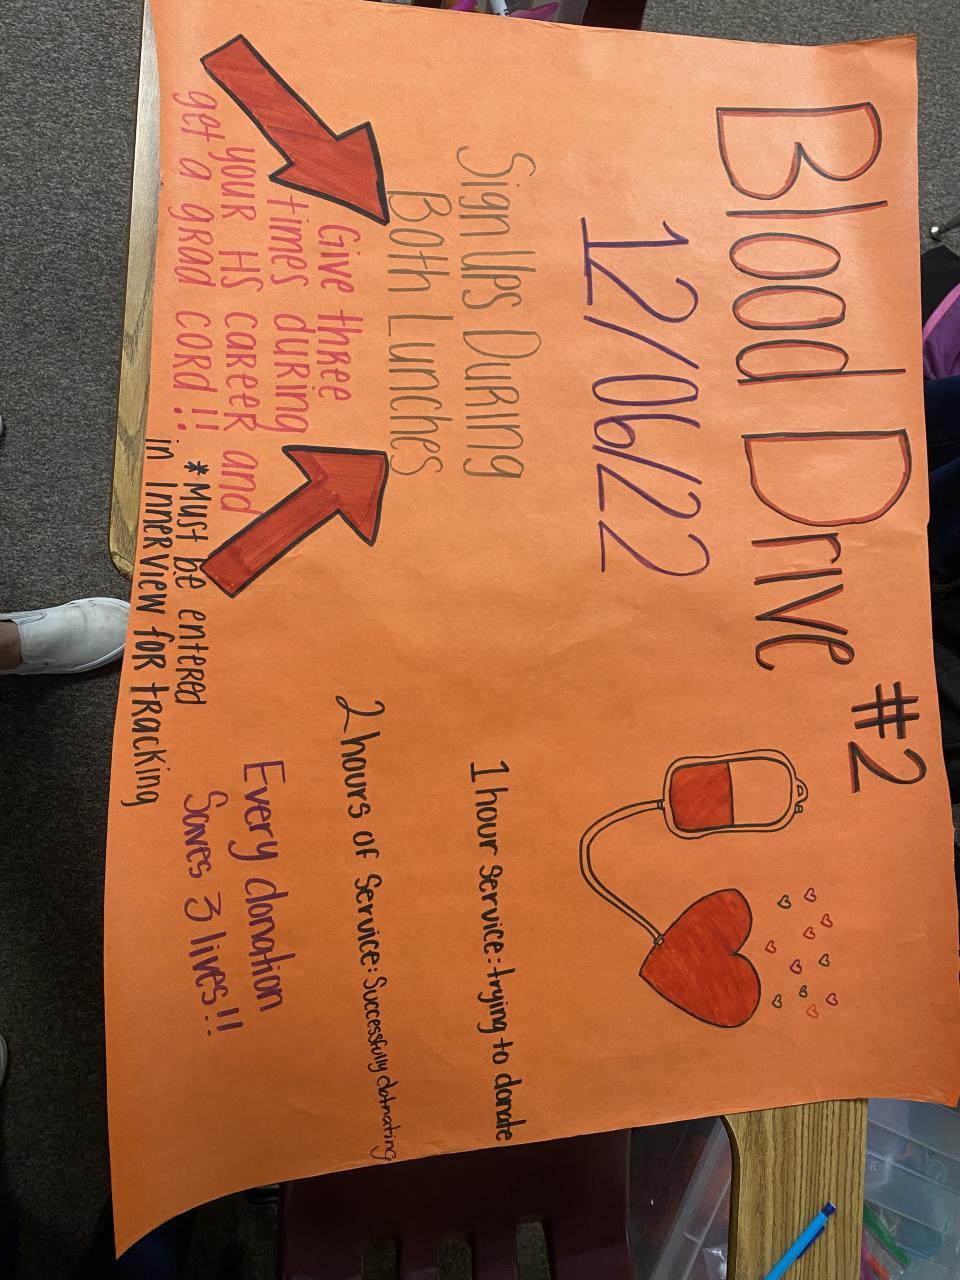 Blood Drive #2
12/06/22
Sign Ups During
Both Lunches
Give three
times during
your HS career and
get a grad cord!!
*Must be entered
in Innerview for tracking
1 hour service: trying to donate
2 hours of service: Successfully dotnating
Every donation
Saves 3 lives!!